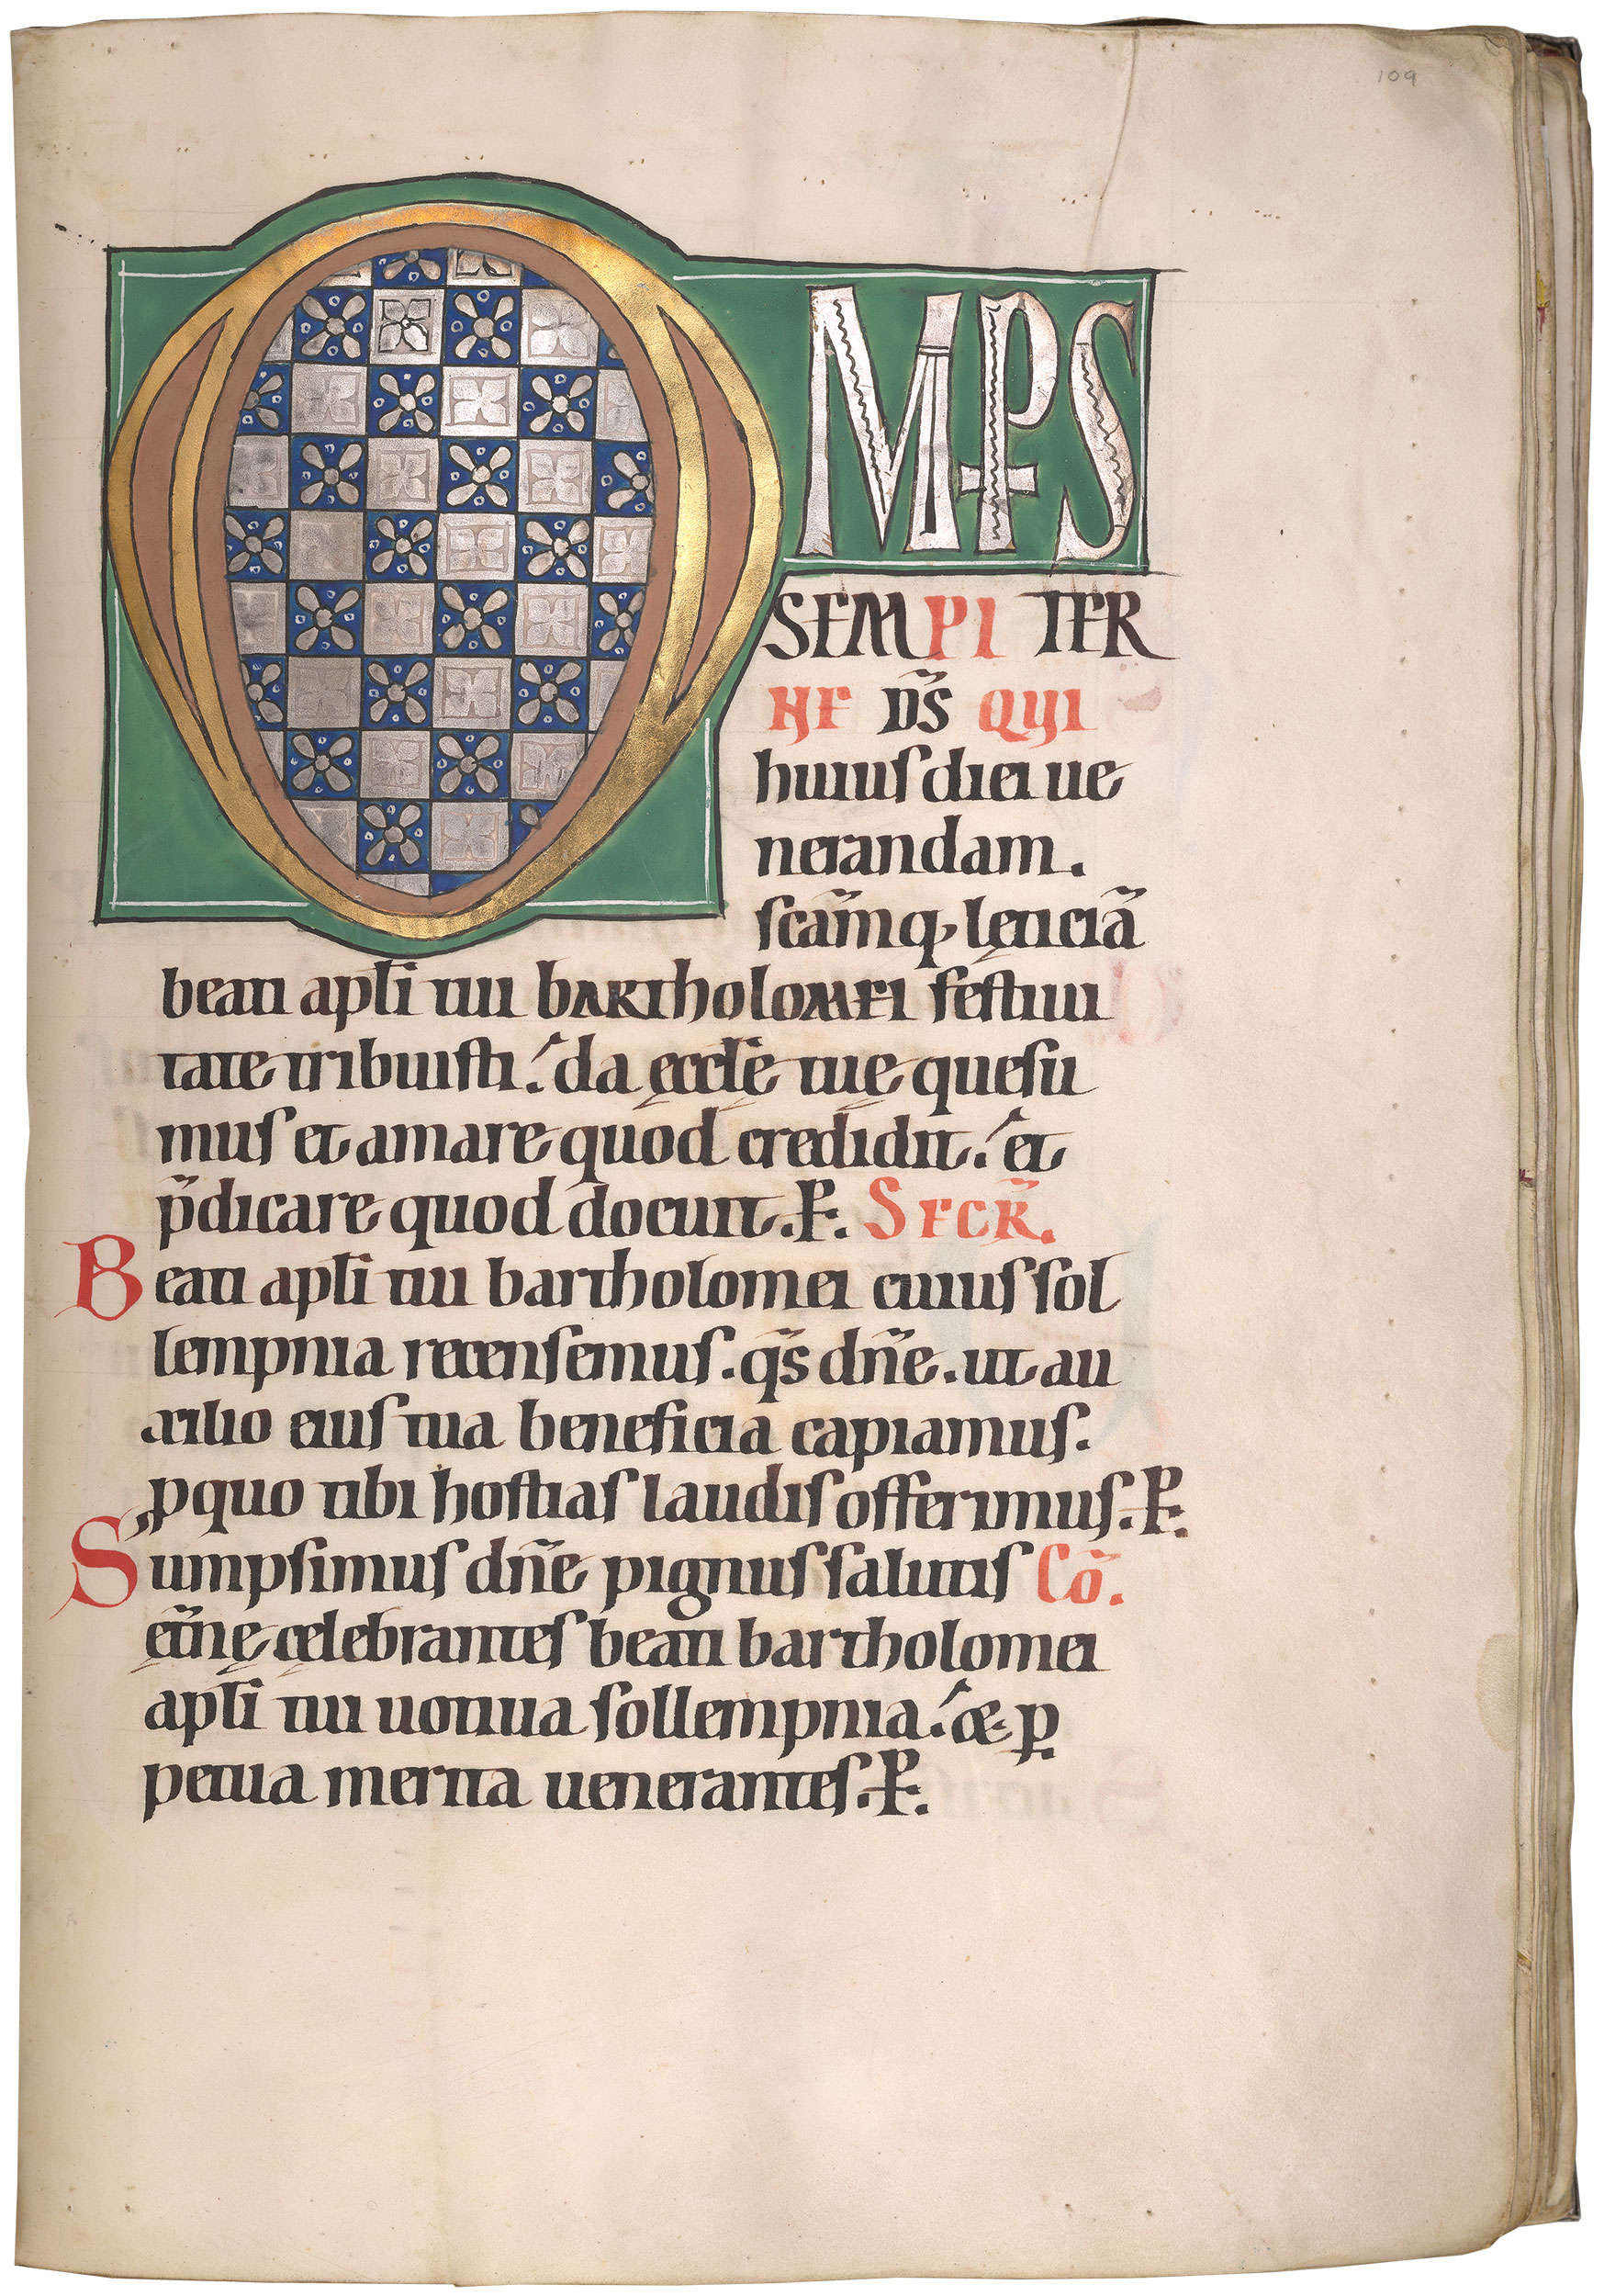 109
OMPS
SEMPI TER
NE DS̄ QUI
huius diei ue
nerandam.
scāmq; lęticiā
beati apłi tui bARTholoMEI festiui
tate tribuisti. da ęccłę tuę quesu
mus et amare quod credidit. et
p̄dicare quod docuit. P. SECR̄.
Beati apłi tui bartholomei cuius sol
lempnia recensemus. qs̄ dn̄e. ut au
xilio eius tua beneficia capiamus.
p quo tibi hostias laudis offerimus. P.
Sumpsimus dn̄e pignus salutis Cō.
ęt̄nę cęlebrantes beati bartholomei
apłi tui uotiua sollempnia. & ꝑ
petua merita uenerantes. P.